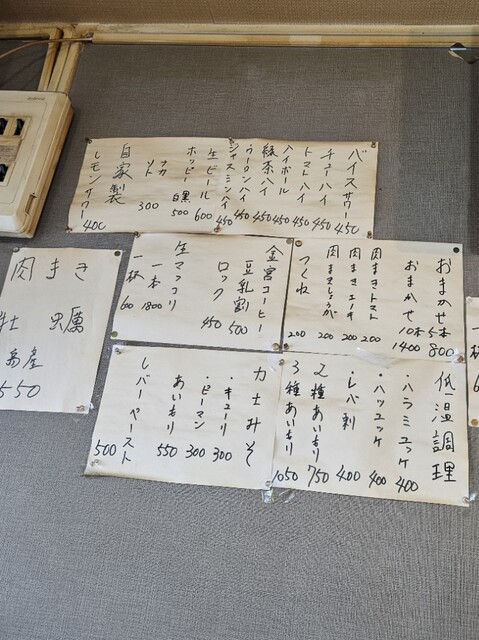 バイスサワー 450
チューハイ 450
トマトハイ 450
ハイボール 450
緑茶ハイ 450
ウーロンハイ 450
ジャスミンハイ 450
生ビール 600
ホッピー 白黒 500
ナカ 300
ソト
自家製
レモンサワー 400
おまかせ5本 800
おまかせ10本 1400
肉まきトマト 200
肉まきエノキ 200
肉まきしょうが 200
つくね 200
金宮コーヒー
豆乳割 500
ロック 450
生マッコリ
一本 1800
一杯 600
肉まき
牡蠣
島産
550
低温調理
・ハラミユッケ 400
・ハツユッケ 400
・レバ刺 400
2種あいもり 750
3種あいもり 1050
力士みそ
・キューリ 300
・ピーマン 300
あいもり 550
レバーペースト 500
一杯
6